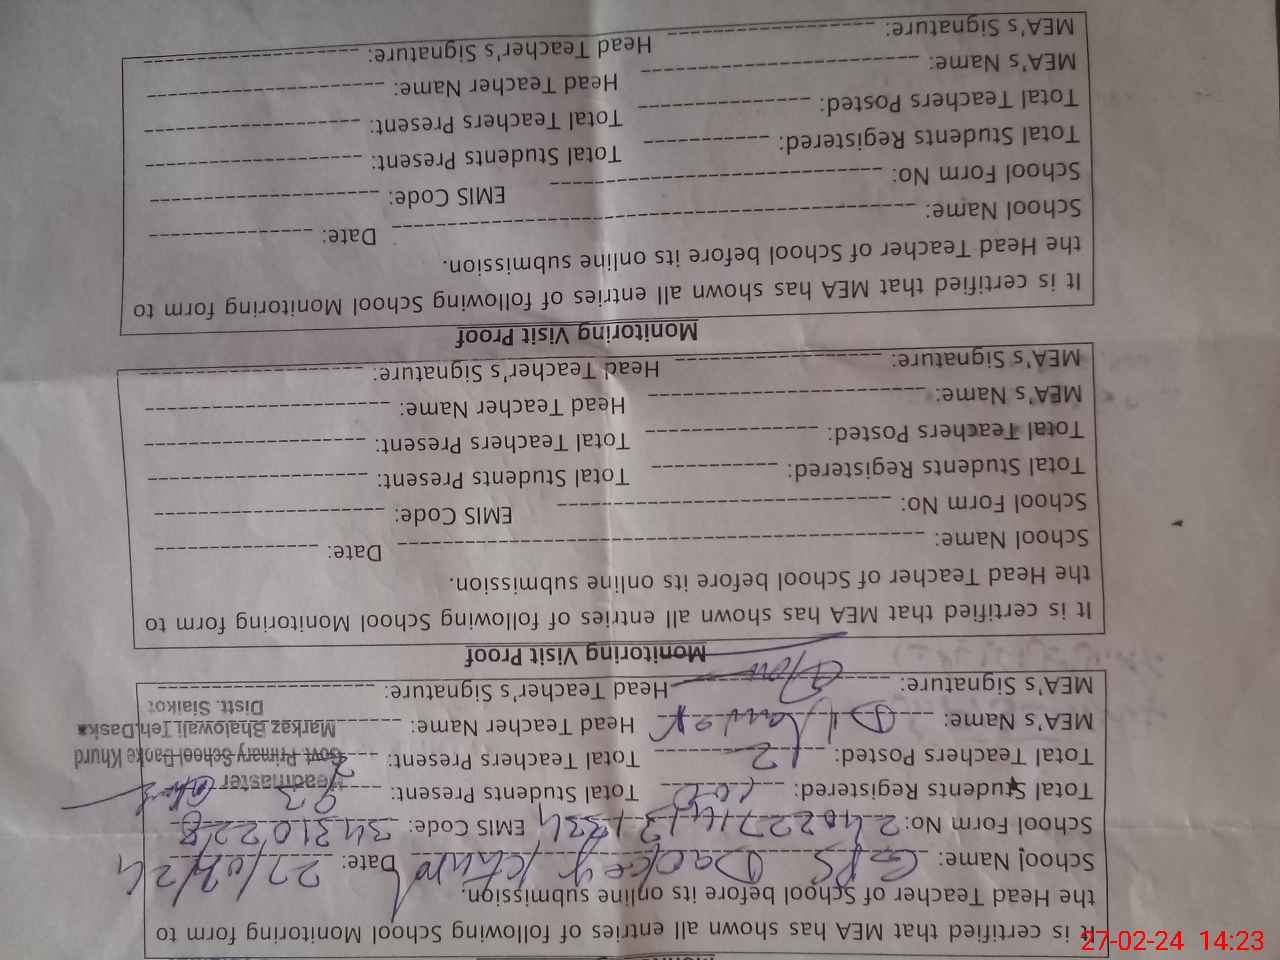 It is certified that MEA has shown all entries of following School Monitoring form to
the Head Teacher of School before its online submission.
School Name: GPS Daokey Khurd Date: 27/02/24
School Form No: EMIS Code: 34310228
Total Students Registered: Total Students Present:
Total Teachers Posted: 2 Total Teachers Present: 2
MEA's Name: Head Teacher Name:
MEA's Signature: Head Teacher's Signature:
Headmaster
Govt. Primary School Daoke Khurd
Markaz Bhalowali Teh. Daska
Distt. Sialkot
Monitoring Visit Proof
It is certified that MEA has shown all entries of following School Monitoring form to
the Head Teacher of School before its online submission.
School Name: Date:
School Form No: EMIS Code:
Total Students Registered: Total Students Present:
Total Teachers Posted: Total Teachers Present:
MEA's Name: Head Teacher Name:
MEA's Signature: Head Teacher's Signature:
Monitoring Visit Proof
It is certified that MEA has shown all entries of following School Monitoring form to
the Head Teacher of School before its online submission.
School Name: Date:
School Form No: EMIS Code:
Total Students Registered: Total Students Present:
Total Teachers Posted: Total Teachers Present:
MEA's Name: Head Teacher Name:
MEA's Signature: Head Teacher's Signature:
27-02-24 14:23